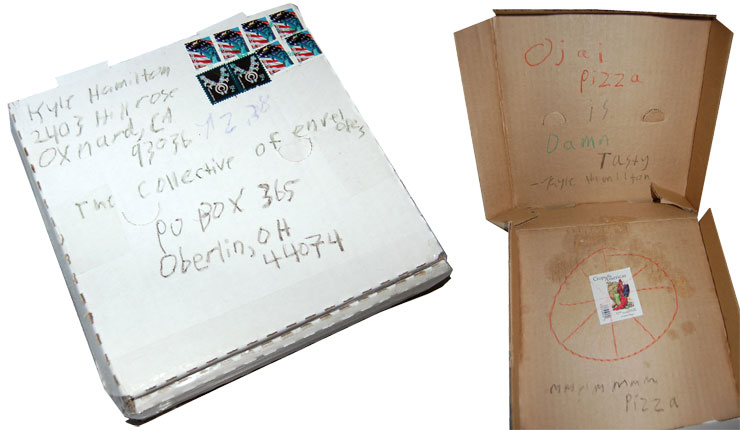 Kyle Hamilton
2403 Hillrose
Oxnard, CA
93036
The Collective of envelopes
PO BOX 365
Oberlin, OH
44074
Ojai
pizza
IS
Damn
Tasty
-Kyle Hamilton
mmmmmmm
Pizza